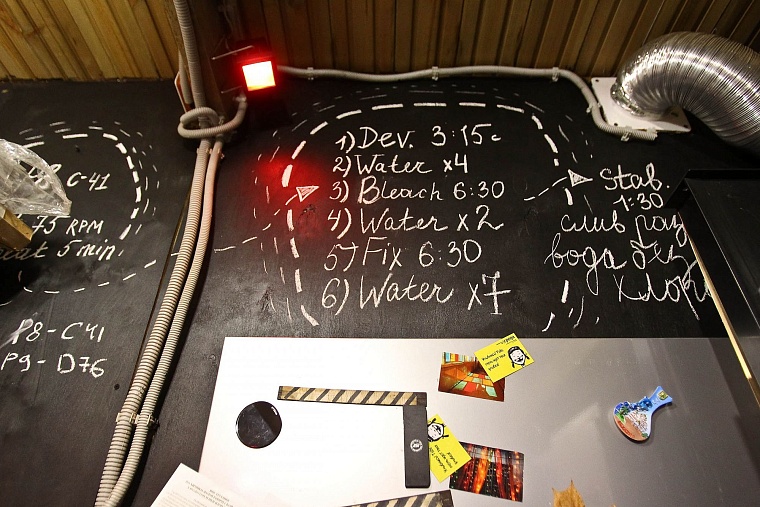 C-41
75 RPM
5 min.
P8-C41
P9-D76
1) Dev. 3:15c
2) Water x4
3) Bleach 6:30
4) Water x2
5) Fix 6:30
6) Water x7
Stab.
1:30
слив раз
вода без
хлора